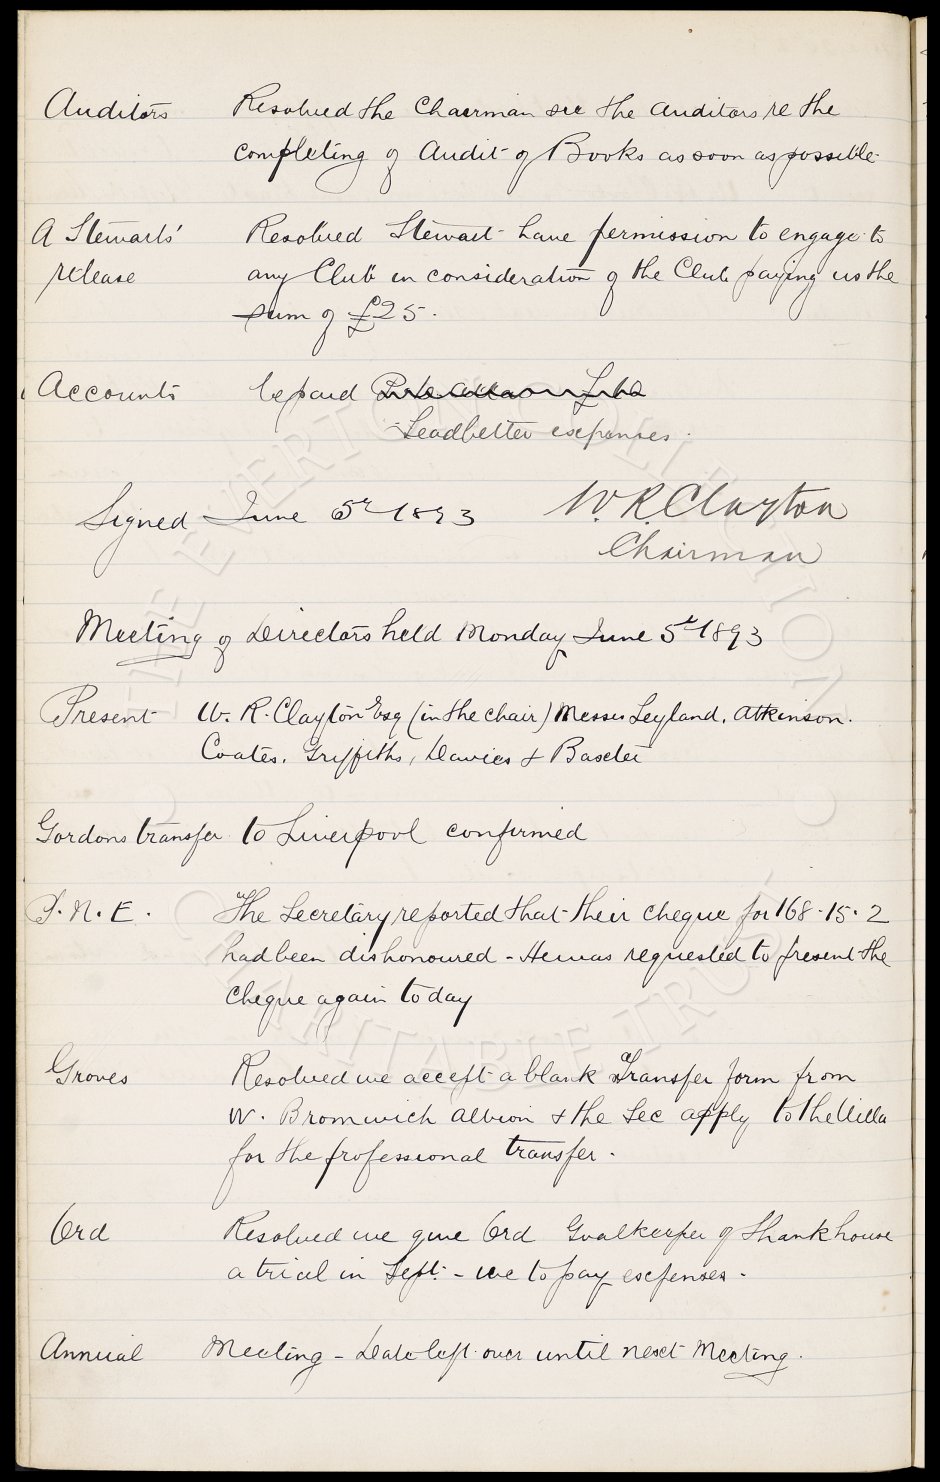 Auditors Resolved the Chairman see the Auditors re the
completing of Audit of Books as soon as possible
A Stewarts' Resolved Stewart have permission to engage to
release any Club in consideration of the Club paying us the
sum of £25.
Accounts be paid
Leadbetter expenses.
Signed June 5th 1893 W. R. Clayton
Chairman
Meeting of Directors held Monday June 5th 1893
Present W. R. Clayton Esq (in the chair) Messrs Leyland, Atkinson.
Coates, Griffiths, Davies & Baxter
Gordons transfer to Liverpool confirmed
P. N. E. The Secretary reported that their cheque for 168-15-2
had been dishonoured - He was requested to present the
cheque again today
Groves Resolved we accept a blank Transfer form from
W. Bromwich Albion & the Sec apply to the Villa
for the professional transfer.
Ord Resolved we give Ord Goalkeeper of Shankhouse
a trial in Sept. - we to pay expenses -
Annual Meeting - Date left over until next Meeting.
THE EVERTON COLLECTION CHARITABLE TRUST